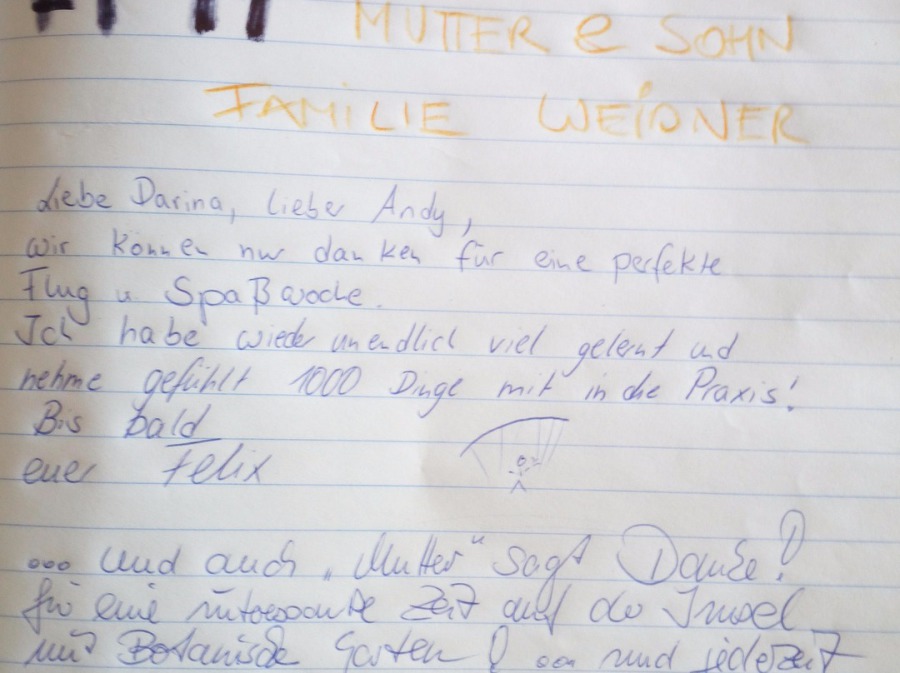 MUTTER & SOHN
FAMILIE WEIDNER
Liebe Darina, lieber Andy,
wir können nur danken für eine perfekte
Flug u Spaßwoche.
Ich habe wieder unendlich viel gelernt und
nehme gefühlt 1000 Dinge mit in die Praxis!
Bis bald
euer Felix
... und auch „Mutter“ sagt Danke!
für eine interessante Zeit auf der Insel
mit Botanische Garten! ... und jederzeit